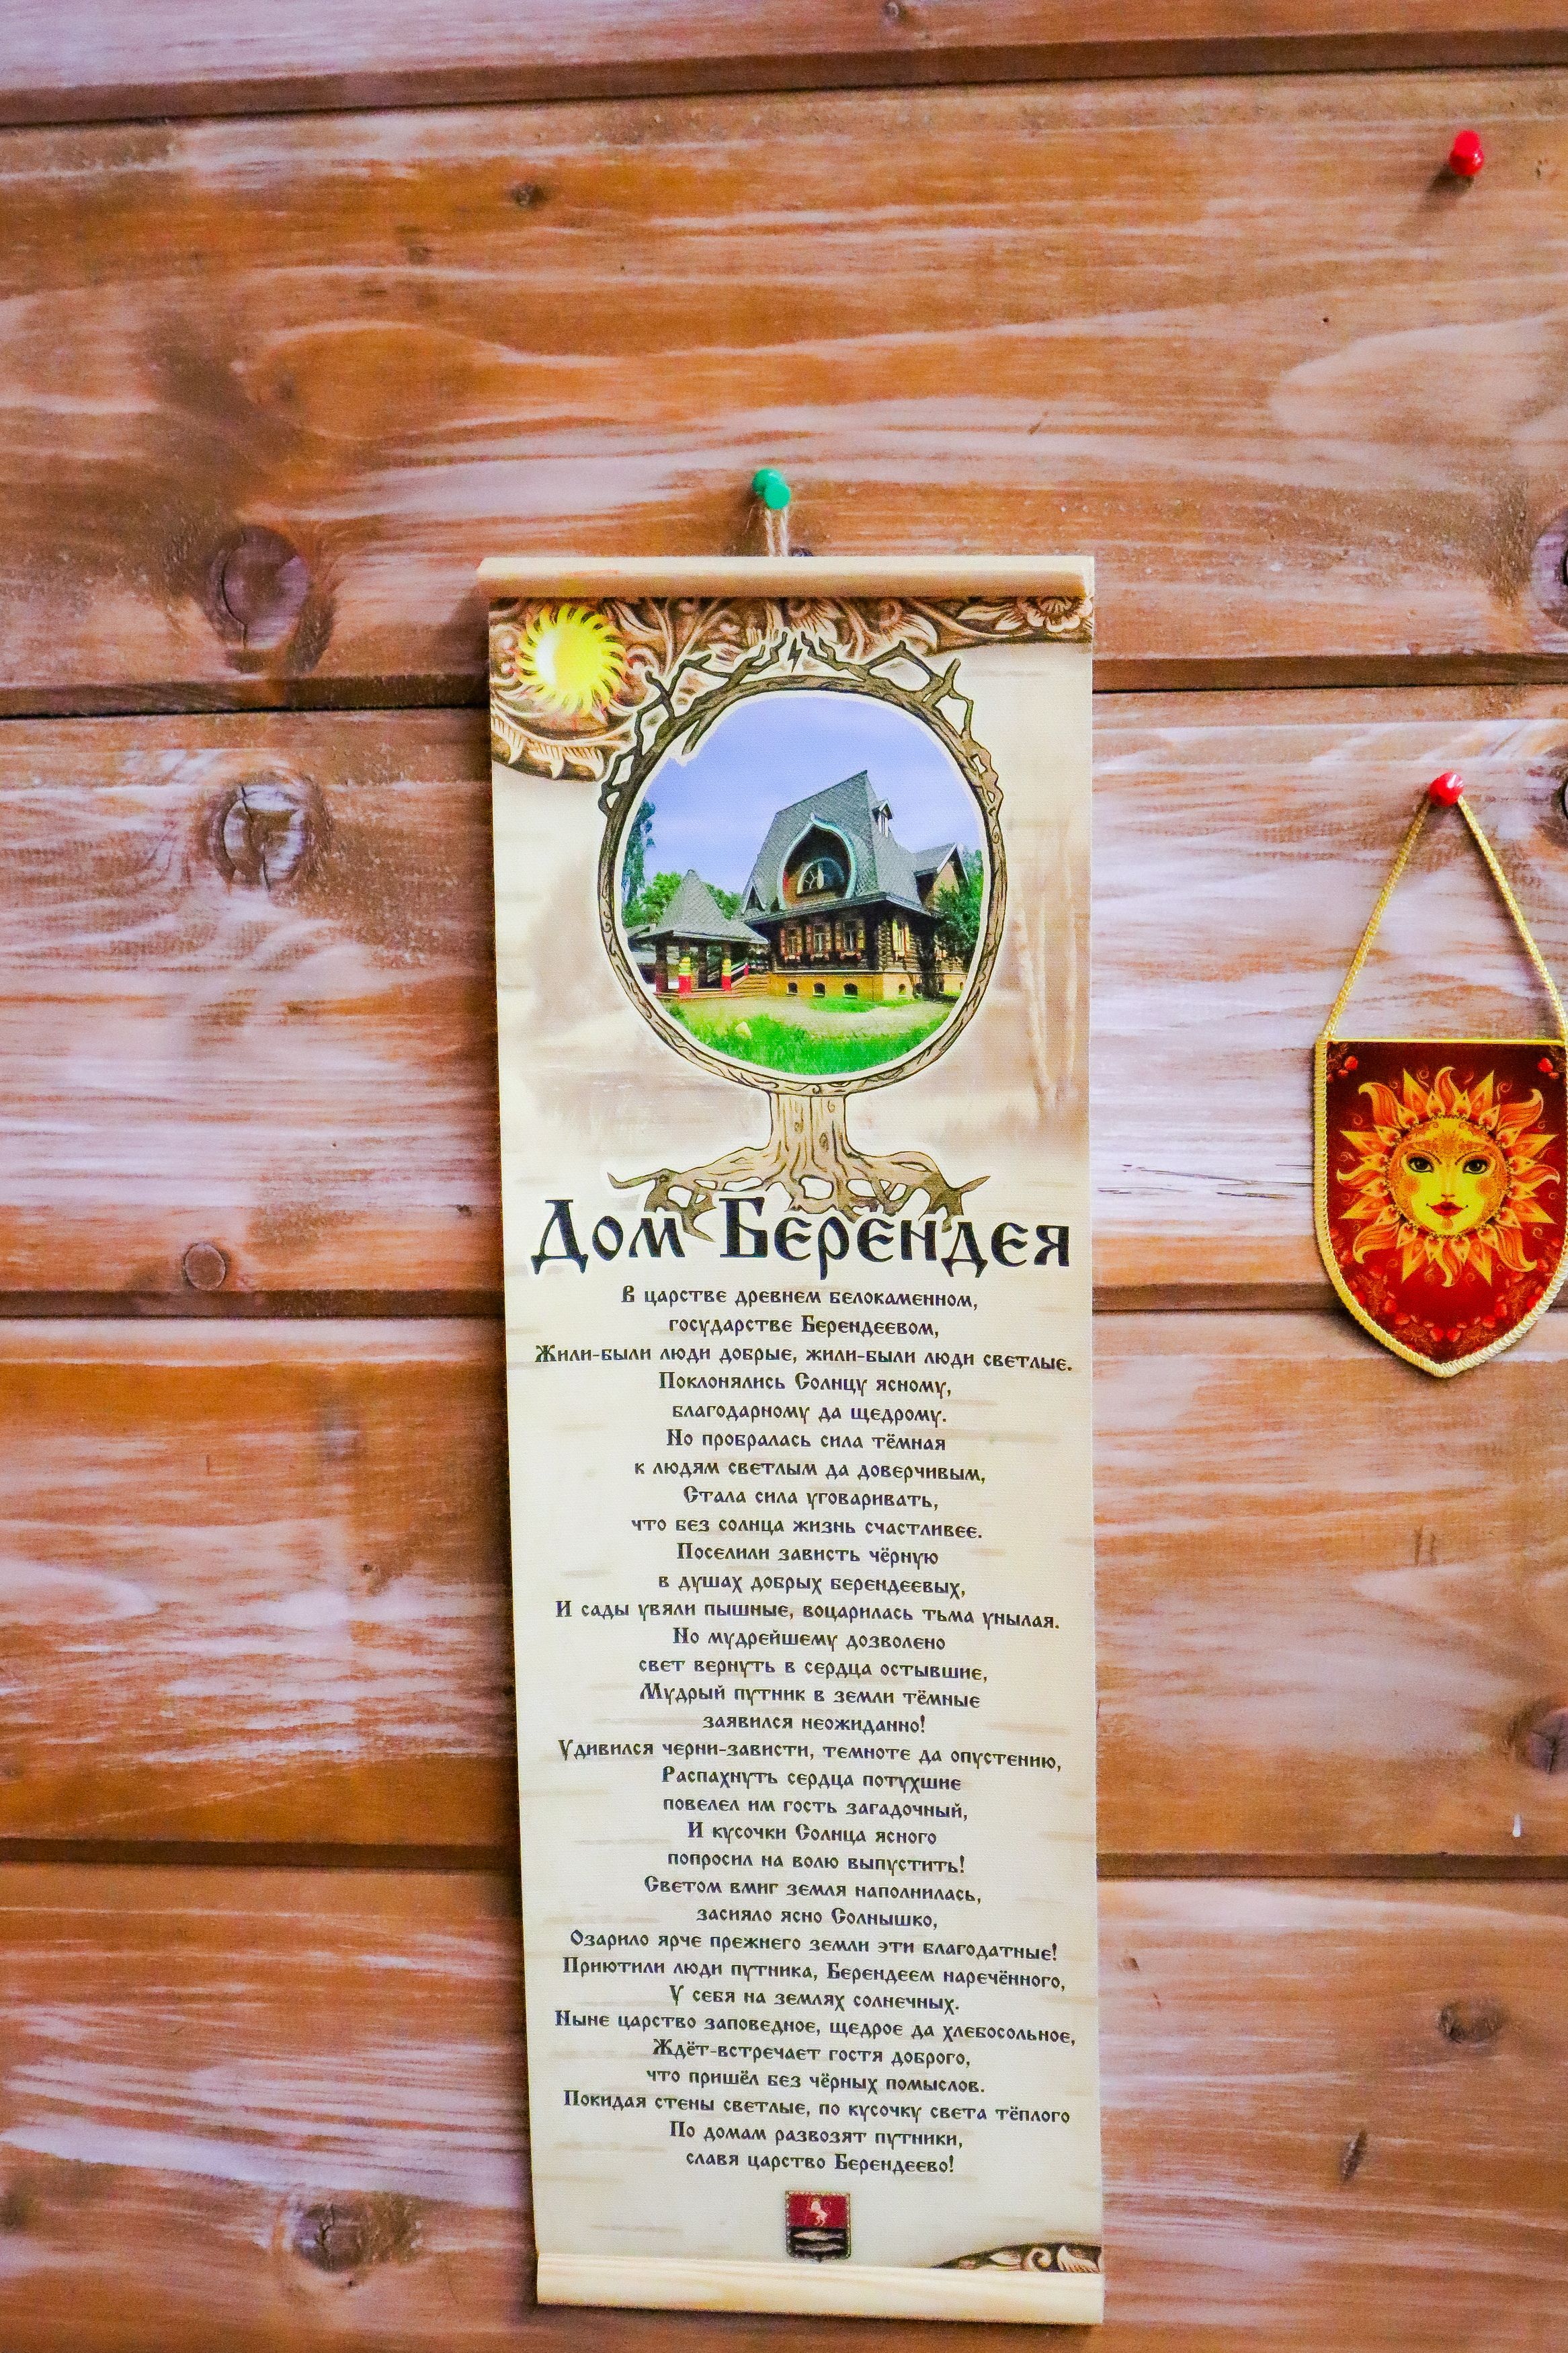 Дом Берендея
В царстве древнем белокаменном,
государстве Берендеевом,
Жили-были люди добрые, жили-были люди светлые.
Поклонялись Солнцу ясному,
благодарному да щедрому.
Но пробралась сила тёмная
к людям светлым да доверчивым,
Стала сила уговаривать,
что без солнца жизнь счастливее.
Поселили зависть чёрную
в душах добрых берендеевых,
И сады увяли пышные, воцарилась тьма унылая.
Но мудрейшему дозволено
свет вернуть в сердца остывшие,
Мудрый путник в земли тёмные
заявился неожиданно!
Удивился черни-зависти, темноте да опустению,
Распахнуть сердца потухшие
повелел им гость загадочный,
И кусочки Солнца ясного
попросил на волю выпустить!
Светом вмиг земля наполнилась,
засияло ясно Солнышко,
Озарило ярче прежнего земли эти благодатные!
Приютили люди путника, Берендеем наречённого,
У себя на землях солнечных.
Ныне царство заповедное, щедрое да хлебосольное,
Ждёт-встречает гостя доброго,
что пришёл без чёрных помыслов.
Покидая стены светлые, по кусочку света тёплого
По домам развозят путники,
славя царство Берендеево!